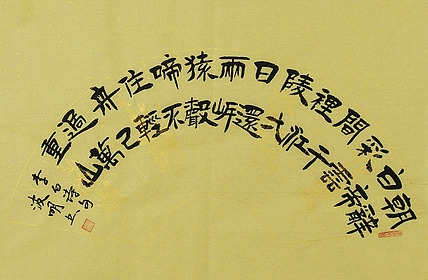 朝辭
白帝
彩雲
間千
裡江
陵一
日還
兩岸
猿聲
啼不
住輕
舟已
過萬
重山
李白詩句